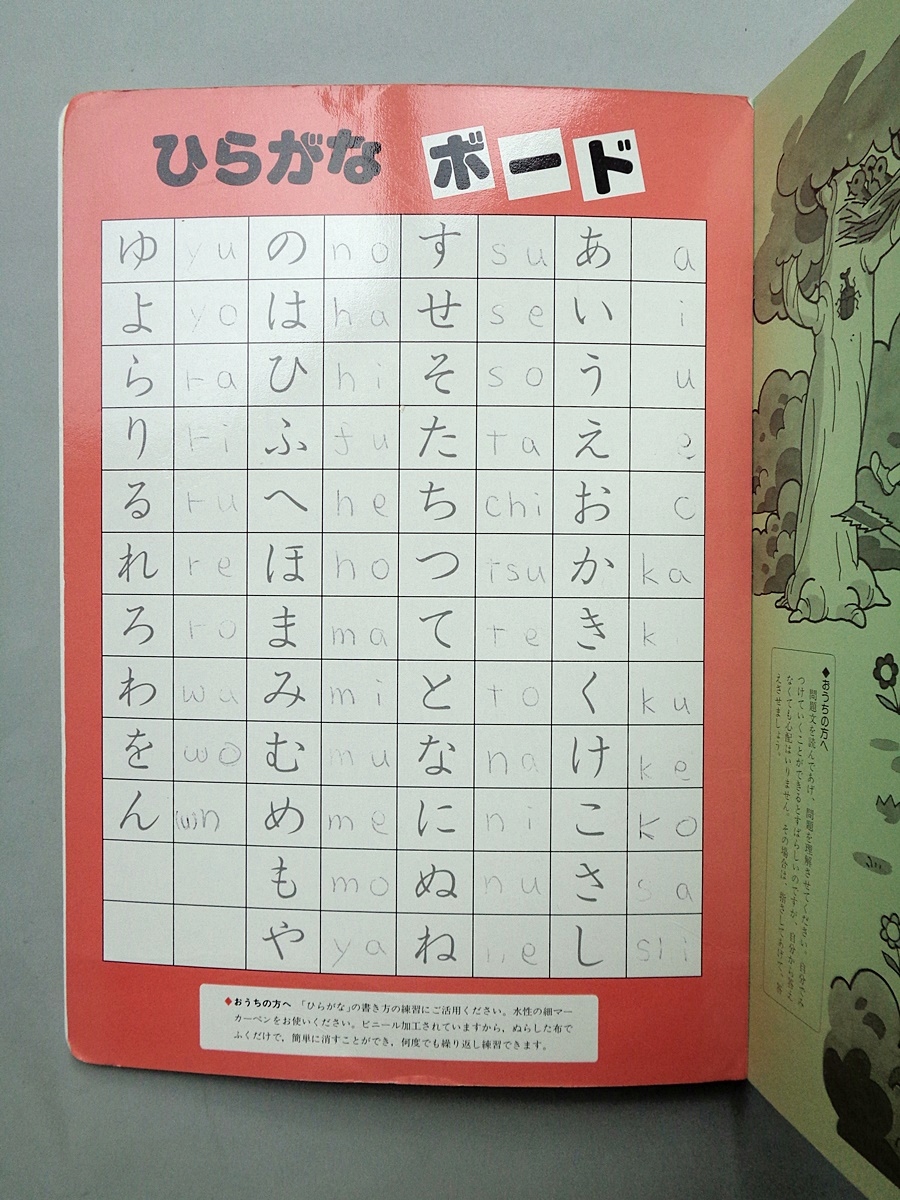 ひらがな ボード
あ a
い i
う u
え e
お o
か ka
き k
く ku
け ke
こ ko
さ sa
し shi
す su
せ se
そ so
た ta
ち chi
つ tsu
て te
と to
な na
に ni
ぬ nu
ね ne
の no
は ha
ひ hi
ふ fu
へ he
ほ ho
ま ma
み mi
む mu
め me
も mo
や ya
ゆ yu
よ yo
ら ra
り ri
る ru
れ re
ろ ro
わ wa
を wo
ん
◆おうちの方へ 「ひらがな」の書き方の練習にご活用ください。水性の細マー
カーペンをお使いください。ビニール加工されていますから、ぬらした布で
ふくだけで、簡単に消すことができ、何度でも繰り返し練習できます。
◆おうちの方へ
問題文を読んであげ、問題を理解させてください。自分でみ
つけていくことができるとすばらしいのですが、自分から答え
なくても心配はいりません。その場合は、指さしてあげて、答
えさせましょう。